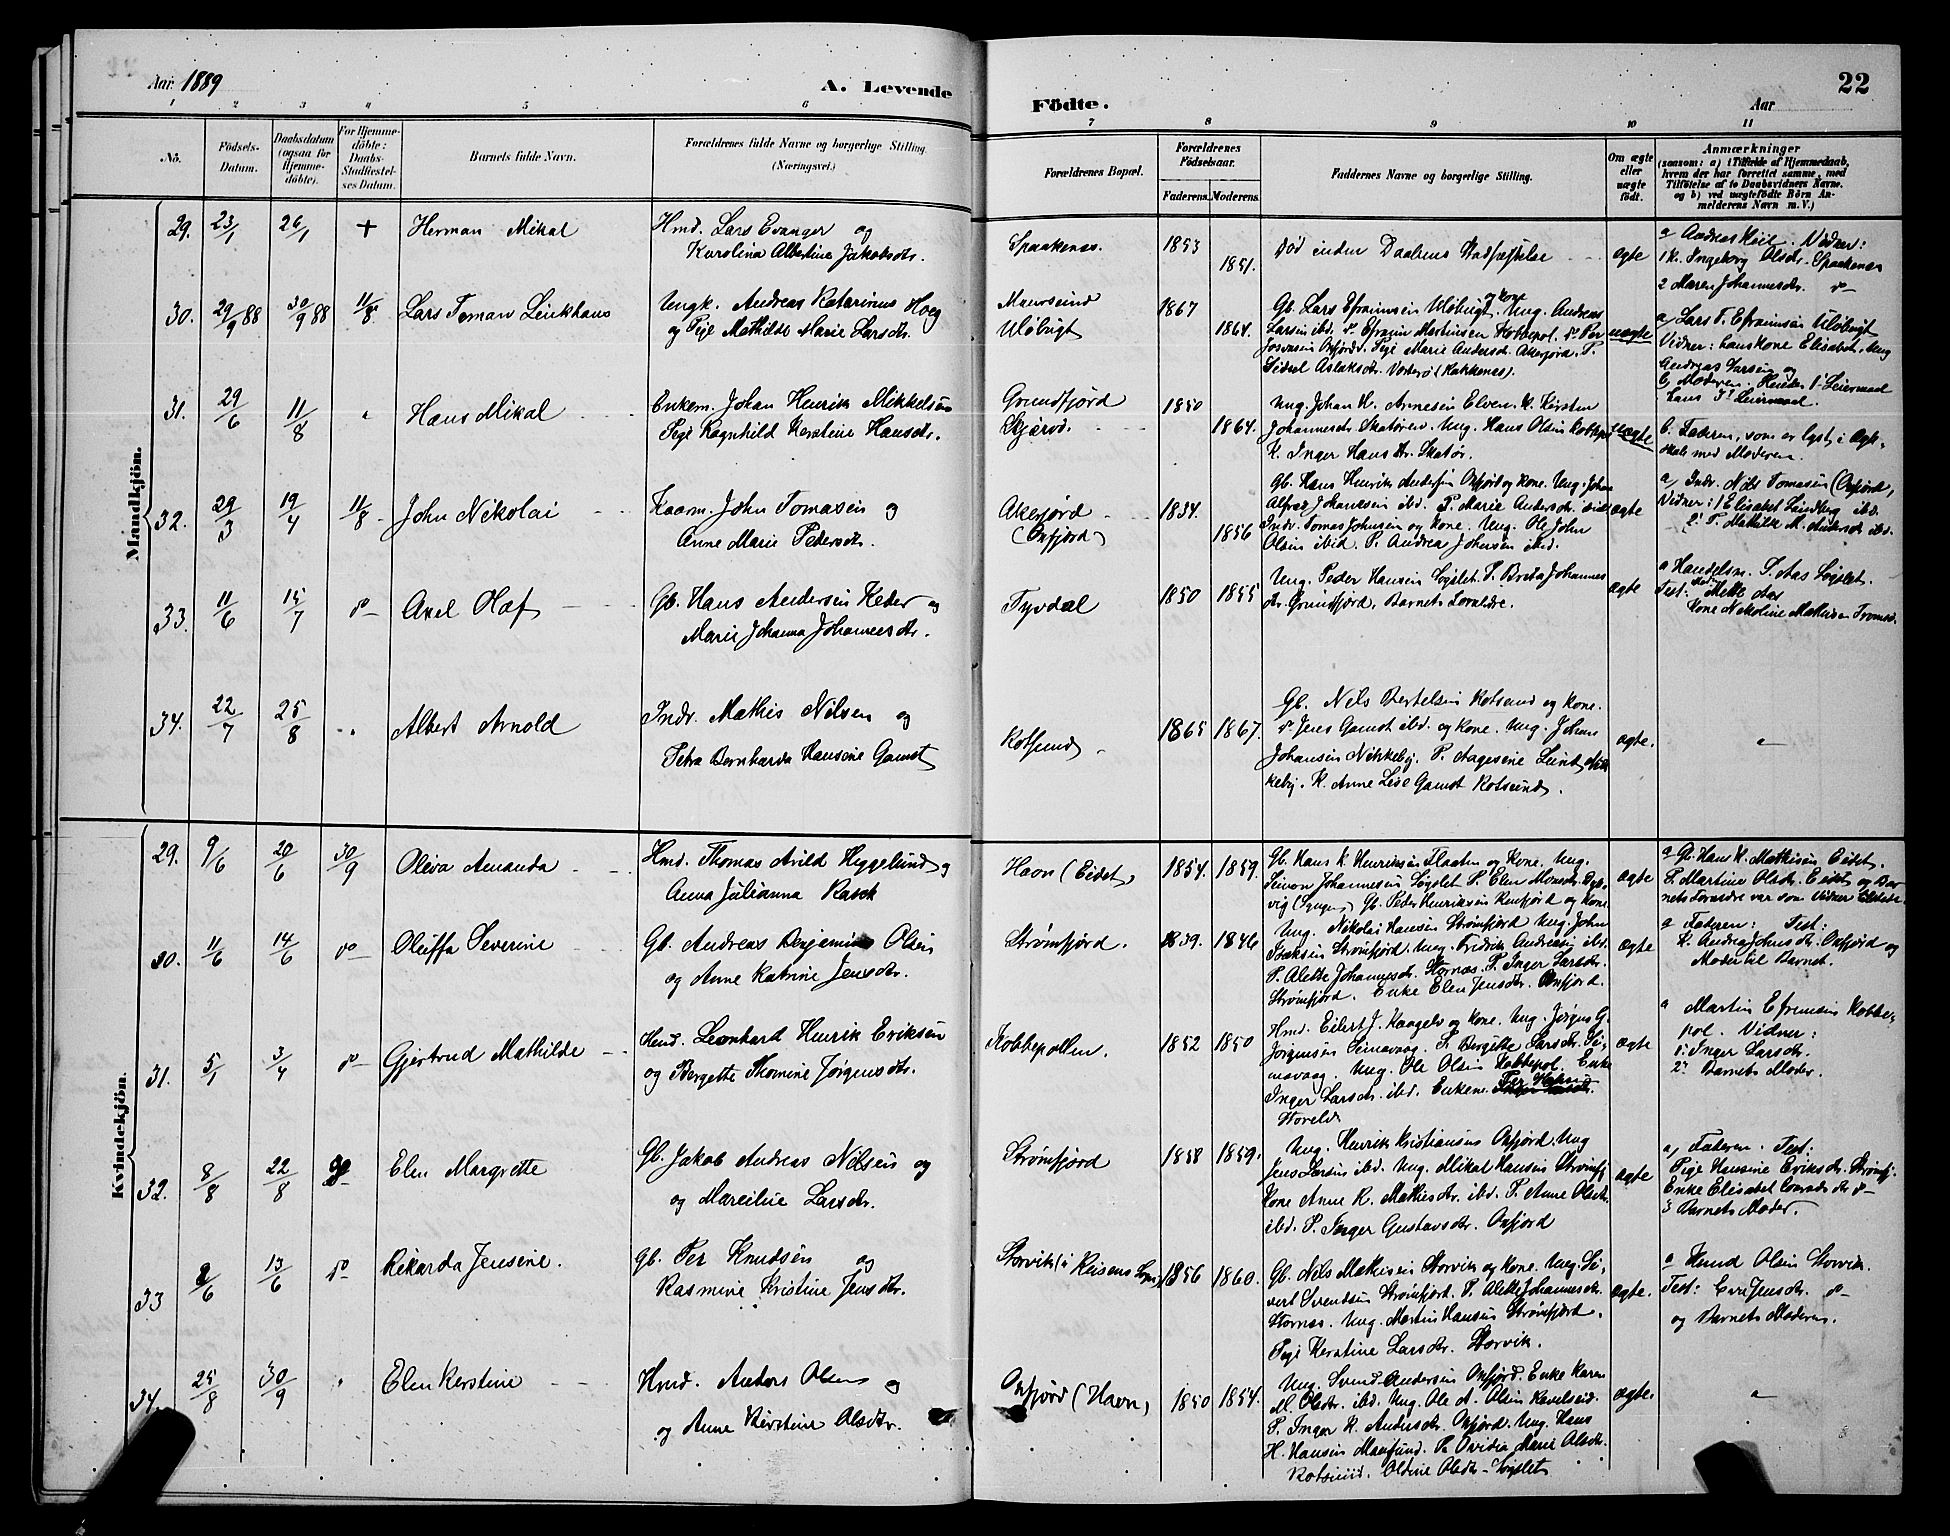 Aar 1889
A. Levende
Födte.
Aar
22
1 2 3 4 5 6 7 8 9 10 11
Nô.
Födsels-
Datum.
Daabsdatum
(ogsaa for
Hjemme-
döbte).
For Hjemme-
döbte:
Daabs-
Stadfæstel-
ses Datum.
Barnets fulde Navn.
Forældrenes fulde Navne og borgerlige Stilling.
(Næringsvei.)
Forældrenes Bopæl.
Forældrenes
Födselsaar.
Faderens. Moderens.
Faddernes Navne og borgerlige Stilling.
Om ægte
eller
uægte
födt.
Anmærkninger
(saasom: a) i Tilfælde af Hjemmedaab,
hvem der har forrettet samme, med
Tilföielse af to Daabsvidners Navne.
og b) ved uægtefödte Börn An-
melderens Navn m. V.)
Mandkjön.
29. 23/1 26/1 + Herman Mikal
Hmd. Lars Evanger og
Karolina Albertine Jakobsdtr.
Spaakenæs. 1853 1851.
Död inden Daabens Stadfæstelse ægte
Vidner:
1 K. Ingeborg Olsdr. Spaakenæs
2 Maren Johannesdr. do
30. 29/9 88 30/9 88 11/8 Lars Toman Linkhaus
Ungk. Andreas Katarinus Hoeg
og Pige Mathilde Marie Larsdr.
Maursund
Uløbugt 1867 1864.
Gb. Lars Efraimsen Uløbugt og Kone. Ung. Andreas
Larsen ibd. do Efraim Martinsen Kobbepol. do Per
Oxfjord. Pige Marie Andersdr. Akerjord. P.
Sidsel Aslaksdr. Vorterø (Kakkenæs).
uægte
a) Lars T. Efraimsen Uløbugt
Vidner: hans Kone Elisabet. Ung
Andreas Larsen og
b, Moderen. Hendes 1ste Leiermaal
hans 1ste Leiermaal.
31. 29/6 11/8 " Hans Mikal
Enkem. Johan Henrik Mikkelsen
Pige Ragnhild Kerstine Hansdr.
Grundfjord
Skjervø. 1850 1864.
Ung. Johan K. Arnesen Elven. K. Kersten
Johannesdr. Skatøren. Ung. Hans Olsen Kobbepol
K. Inger Hansdr. Skatør.
uægte
b. Faderen, som er lyst i Ægte-
skab med Moderen.
32. 29/3 19/4 11/8 John Nikolai
Kaarm. John Tomasen og
Anne Marie Pedersdr.
Akerjord
(Oxfjord) 1834 1856
Gb. Hans Henrik Andersen Oxfjord og Kone. Ung. Johan
Alfred Johansen ibd. P. Marie Andersdr. ibid
Indr. Tomas Johnsen og Kone. Ung. Ole John
Olsen ibid. P. Andrea Johnsen ibd.
ægte
a, Indr. Nils Tomasen (Oxfjord,
Vidner: 1 Elisabet Sandberg ibd.
2 P. Mathilde M. Andersdr. ibd.
33. 11/6 15/7 do Axel Olaf
Gb. Hans Andersen Keder og
Marie Johanna Johannesdr.
Tyvdal 1850 1855
Ung. Peder Hansen Løgslet. P. Brita Johannes
dr. Grundfjord. Barnets Forældre.
ægte
a Handelsm. S. Aas Løgslet.
Test: Mette Aas
Kone Nikoline Mathisen Tromsø.
34. 22/7 25/8 " Albert Arnold
Indr. Mathis Nilsen og
Petra Bernharda Hansine Gamst
Rotsund 1865 1867.
Gb. Nels Bertelsen Rotsund og Kone.
do Jens Gamst ibd. og Kone. Ung. Johan
Johansen Nikkeby. P. Aagesine Lund Nik
keby. K. Anne Lise Gamst Rotsund.
ægte. "
Kvindekjön.
29. 9/6 20/6 30/9 Oliva Amanda
Hmd. Thomas Arild Hyggelund og
Anna Julianna Rasch
Havn (Eidet) 1854. 1859.
Gb. Hans K. Henriksen Flaaten og Kone. Ung.
Simon Johannesen Løgslet P. Elen Monsdr. Dyb-
vig (Lyngen) Gb. Peder Henriksen Renfjord og Kone
ægte
a Gb. Hans K. Mathisen Eidet.
P. Martine Olsdr. Eidet og Bar
nets Forældre var som Vidner tilstede.
30. 11/6 14/6 do Oleiffa Severine
Gb. Andreas Benjamin Olsen
og Anne Katrine Jensdr.
Strømfjord. 1839. 1846
Ung. Nikolai Hansen Strømfjord Ung. John
Isaksen Strømfjord. Ung. Fredrik Andreasen ibd.
P. Alette Johannesdr. Stornæs. P. Inger Larsdr.
Strømfjord. Enke Elen Jensdr. Oxfjord.
ægte
a Faderen: Test:
K. Andrea Johnsdr. Oxfjord og
Moder til Barnet.
31. 5/1 3/4 do Gjertrud Mathilde
Hmd. Leonhard Henrik Eriksen
og Bergette Thomine Jørgensdr.
Kobbepollen. 1852 1850
Hmd. Eilert J. Kaagelv og Kone. Ung. Jørgen G.
Jörgensen Simavaag. P. Bergette Larsdr. Si-
mavaag. Ung. Ole Olsen Kobbepol. Enke
Inger Larsdr. ibd. Enkem.
ægte
a Martin Efremsen Kobbe-
pol. Vidner:
1: Inger Larsdr.
2: Barnets Moder.
32. 8/8 22/8 do Elen Margrette
Gb. Jakob Andreas Nilsen og
og Mareilie Larsdr.
Strømfjord 1858 1859.
Ung. Henrik Kristiansen Oxfjord. Ung
Jens Larsen ibd. Ung. Mikal Hansen Strømfj.
Kone Anne K. Mathisdr. ibd. P. Anne Olsdr.
ibd. P. Inger Gustavsdr. Oxfjord
ægte
a, Faderen. Test:
Pige Hansine Eriksdr. Strømfj:
Enke Elisabet Conradsdr. do
3 Barnets Moder.
33 2/6 13/6 do Rikarda Jensine.
Gb. Per Knudsen og
Rasmine Kristine Jensdr.
Storvik (i Reisens Sogn) 1856 1860.
Gb. Nils Mathisen Storvik og Kone. Ung. Si-
vert Svendsen Strømfjord. P. Alette Johannesdr.
Stornæs. Ung. Martin Hansen Strømfjord.
Pige Kerstine Larsdr. Storvik.
ægte.
a Knud Olsen Storvik.
Test: Jensdr. do
og Barnets Moder.
34. 25/8 30/9 " Elen Kerstine
Hmd. Anders Olsen og
og Anne Kerstine Olsdtr.
Oxfjord (Havn) 1850 1854.
Ung. Svend Andersen Oxfjord. Enke Karen
M. Olsdr. ibd. Ung. Ole A. Olsen Ravelseid.
P. Inger K. Andersdr. Oxfjord. Ung. Hans
H. Hansen Maursund. P. Ovidia Marie Olsdr.
Rotsund. Oldine Olsdr. Løgslet
ægte. "